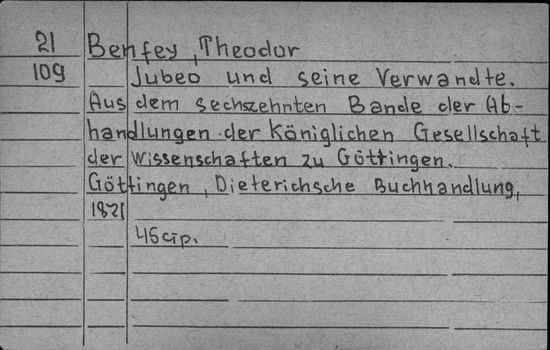 21 Benfey, Theodor
109 Jubeo und seine Verwandte.
Aus dem sechszehnten Bande der Ab-
handlungen der Königlichen Gesellschaft
der Wissenschaften zu Göttingen.
Göttingen, Dieterichsche Buchhandlung,
1821
45 cтр.